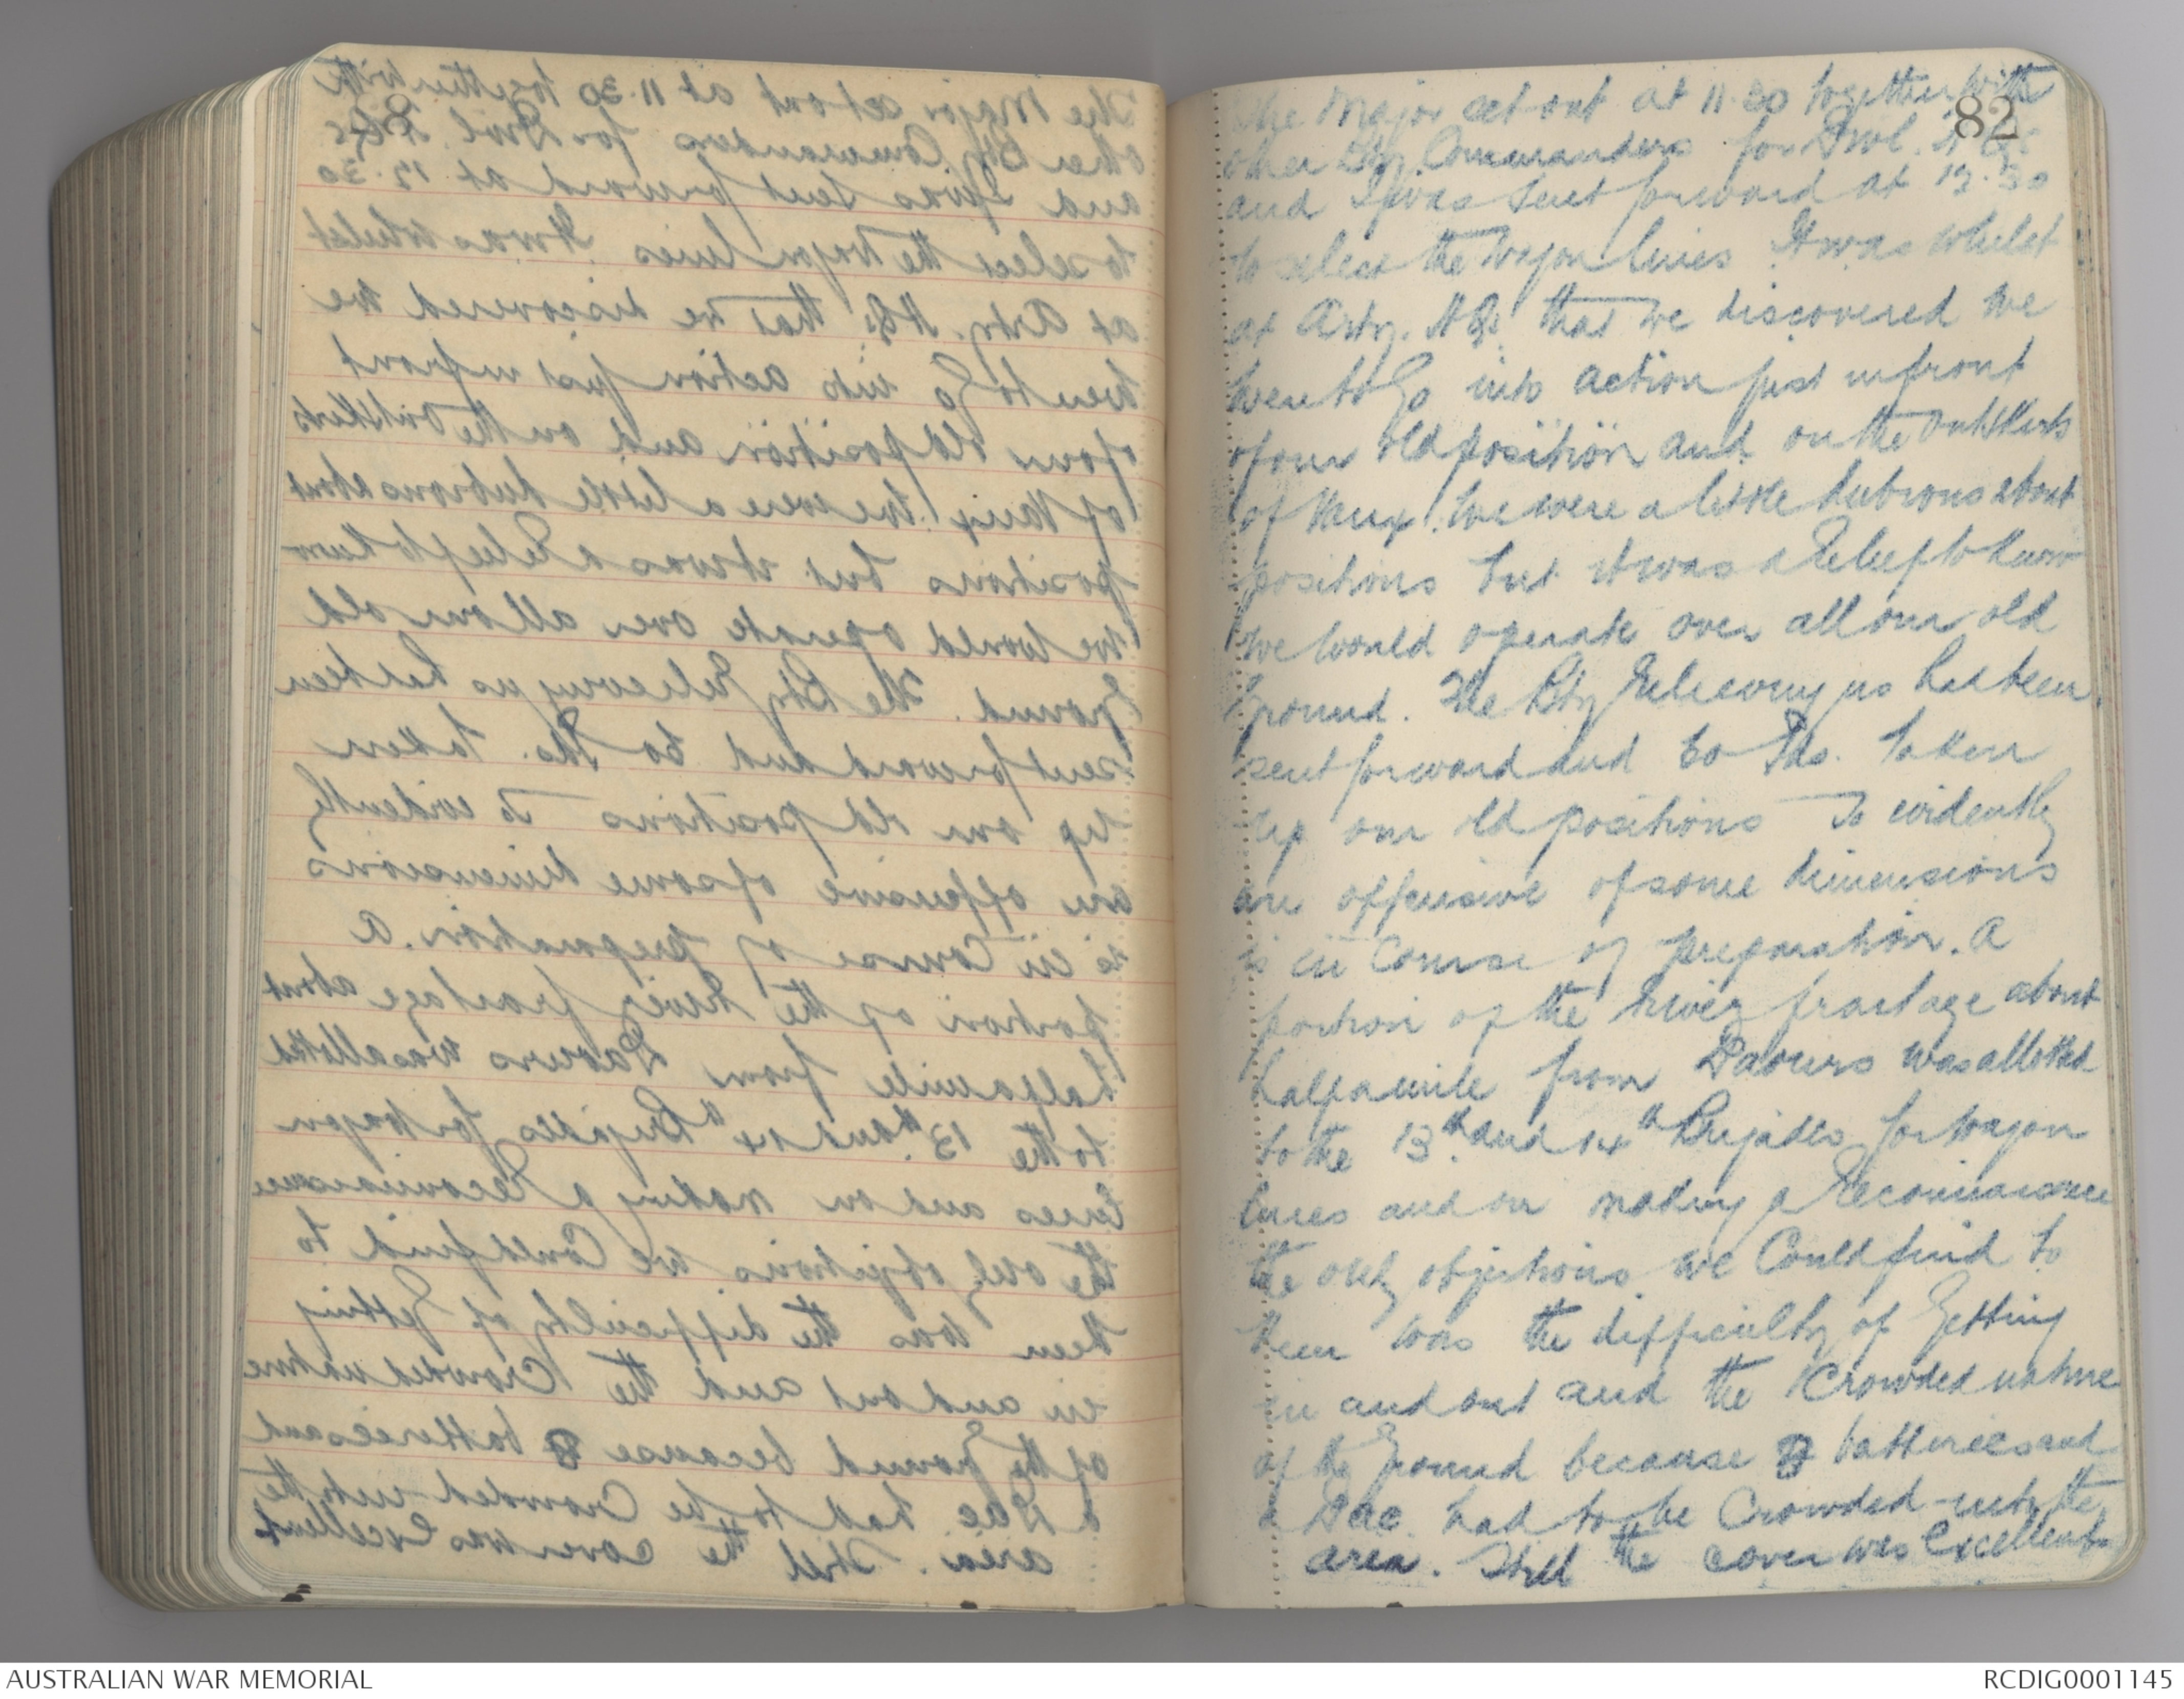 82
The Major set out at 11.30 together with
other Bty Commanders for Divl. HQrs
and I was sent forward at 12.30
to select the wagon lines. It was whilst
at Arty. HQs that we discovered we
were to go into action just in front
of our old position and on the outskirts
of Vaux. We were a little dubious about
positions but it was a relief to know
we would operate over all our old
ground. The Bty relieving us had been
sent forward and to Pdo. taken
up our old positions To evidently
an offensive of some dimensions
is in course of preparation. A
portion of the river frontage about
half a mile from Daours was allotted
to the 13th and 14th Brigades for wagon
lines and on making a reconnaissance
the only objections we could find to
them was the difficulty of getting
in and out and the crowded nature
of the ground because 8 batteries and
a Dac. had to be crowded into the
area. Still the cover was excellent
AUSTRALIAN WAR MEMORIAL
RCDIG0001145